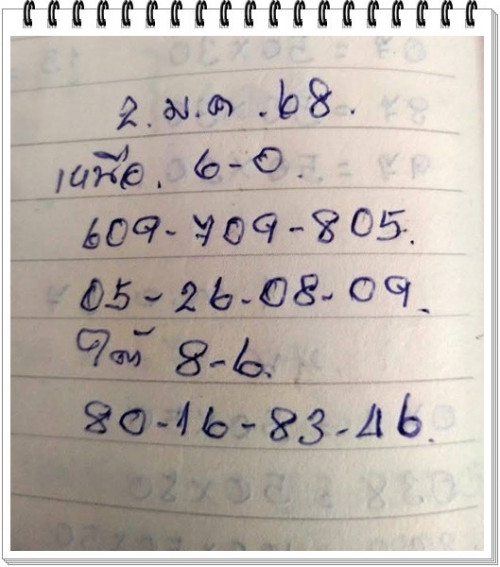 2.ม.ค.68.
เหนือ. 6-0.
609-709-805.
05-26-08-09.
ใต้ 8-6.
80-16-83-46.